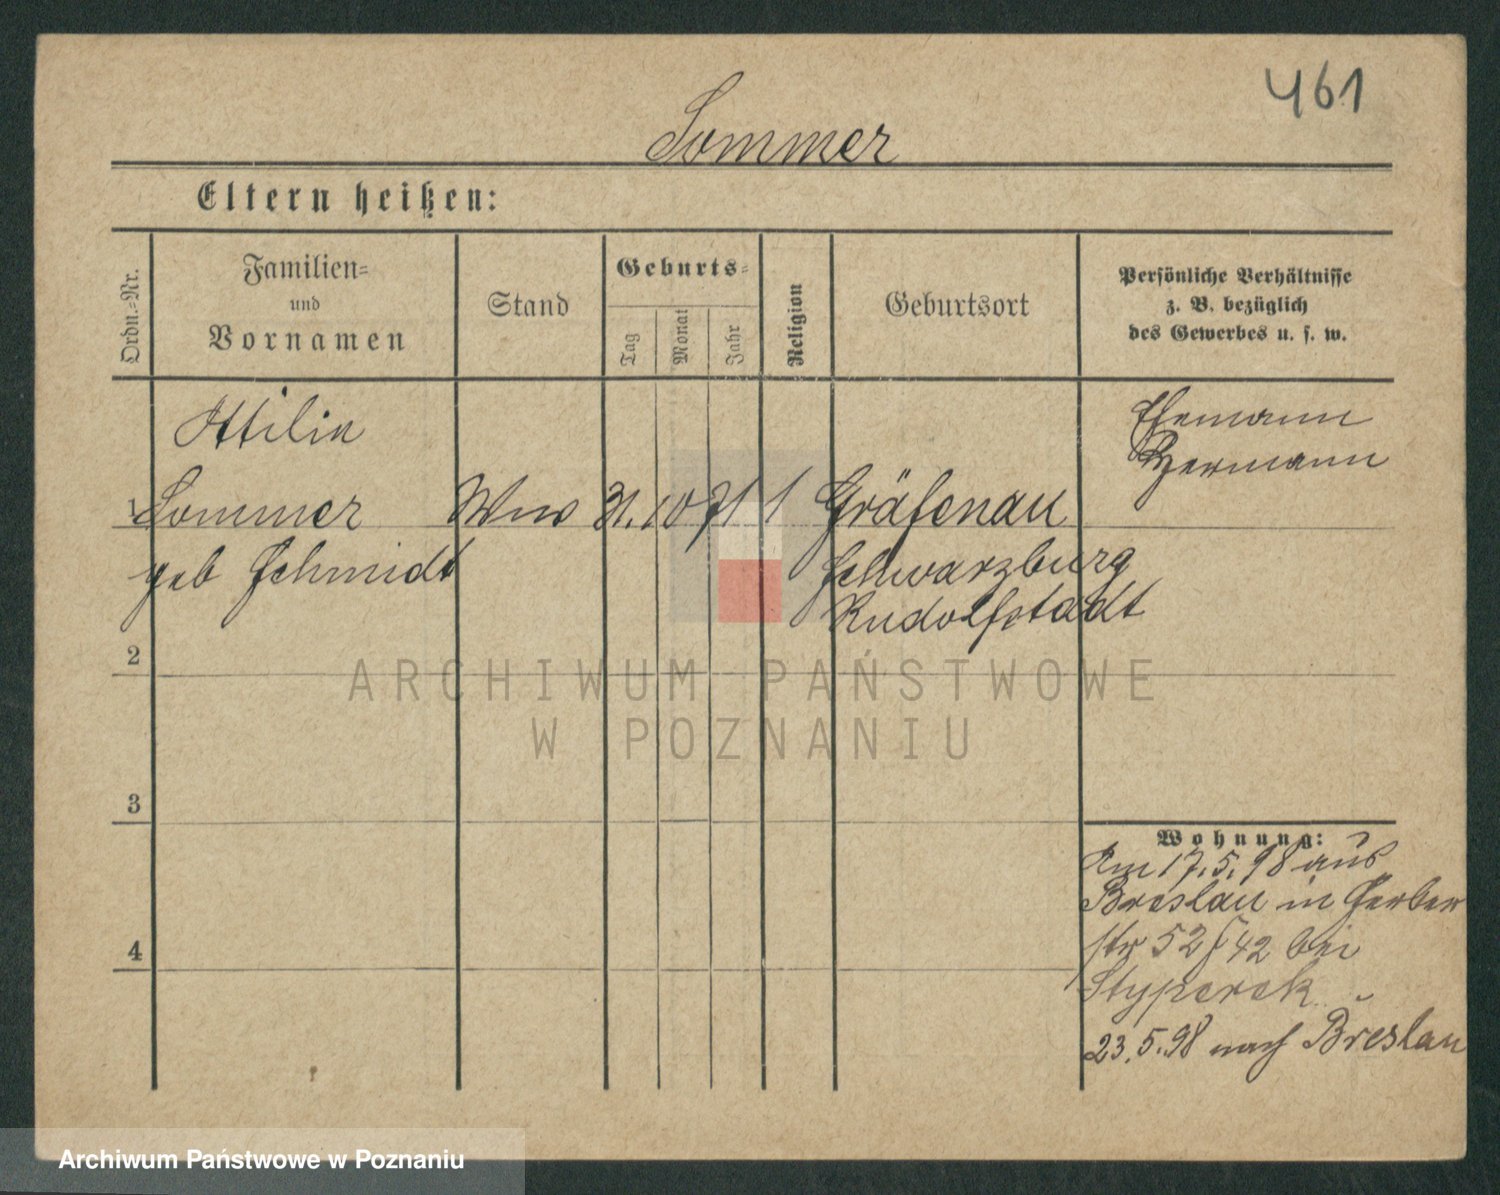 461
Sommer
Eltern heißen:
Ordn.-Nr.
Familien-
und
Vornamen
Stand
Geburts-
Tag
Monat
Jahr
Religion
Geburtsort
Persönliche Verhältnisse
z. B. bezüglich
des Gewerbes u. s. w.
Ottilie
Ehemann
Hermann
1 Sommer Wwe 31. 10 71 Gräfenau
geb Schmidt Schwarzburg
Rudolfstadt
2
ARCHIWUM PAŃSTWOWE
W POZNANIU
3
Wohnung:
Am 17.5.98 aus
Breslau in Gerber
str 52 42 bei
4
23.5.98 nach Breslau
Archiwum Państwowe w Poznaniu